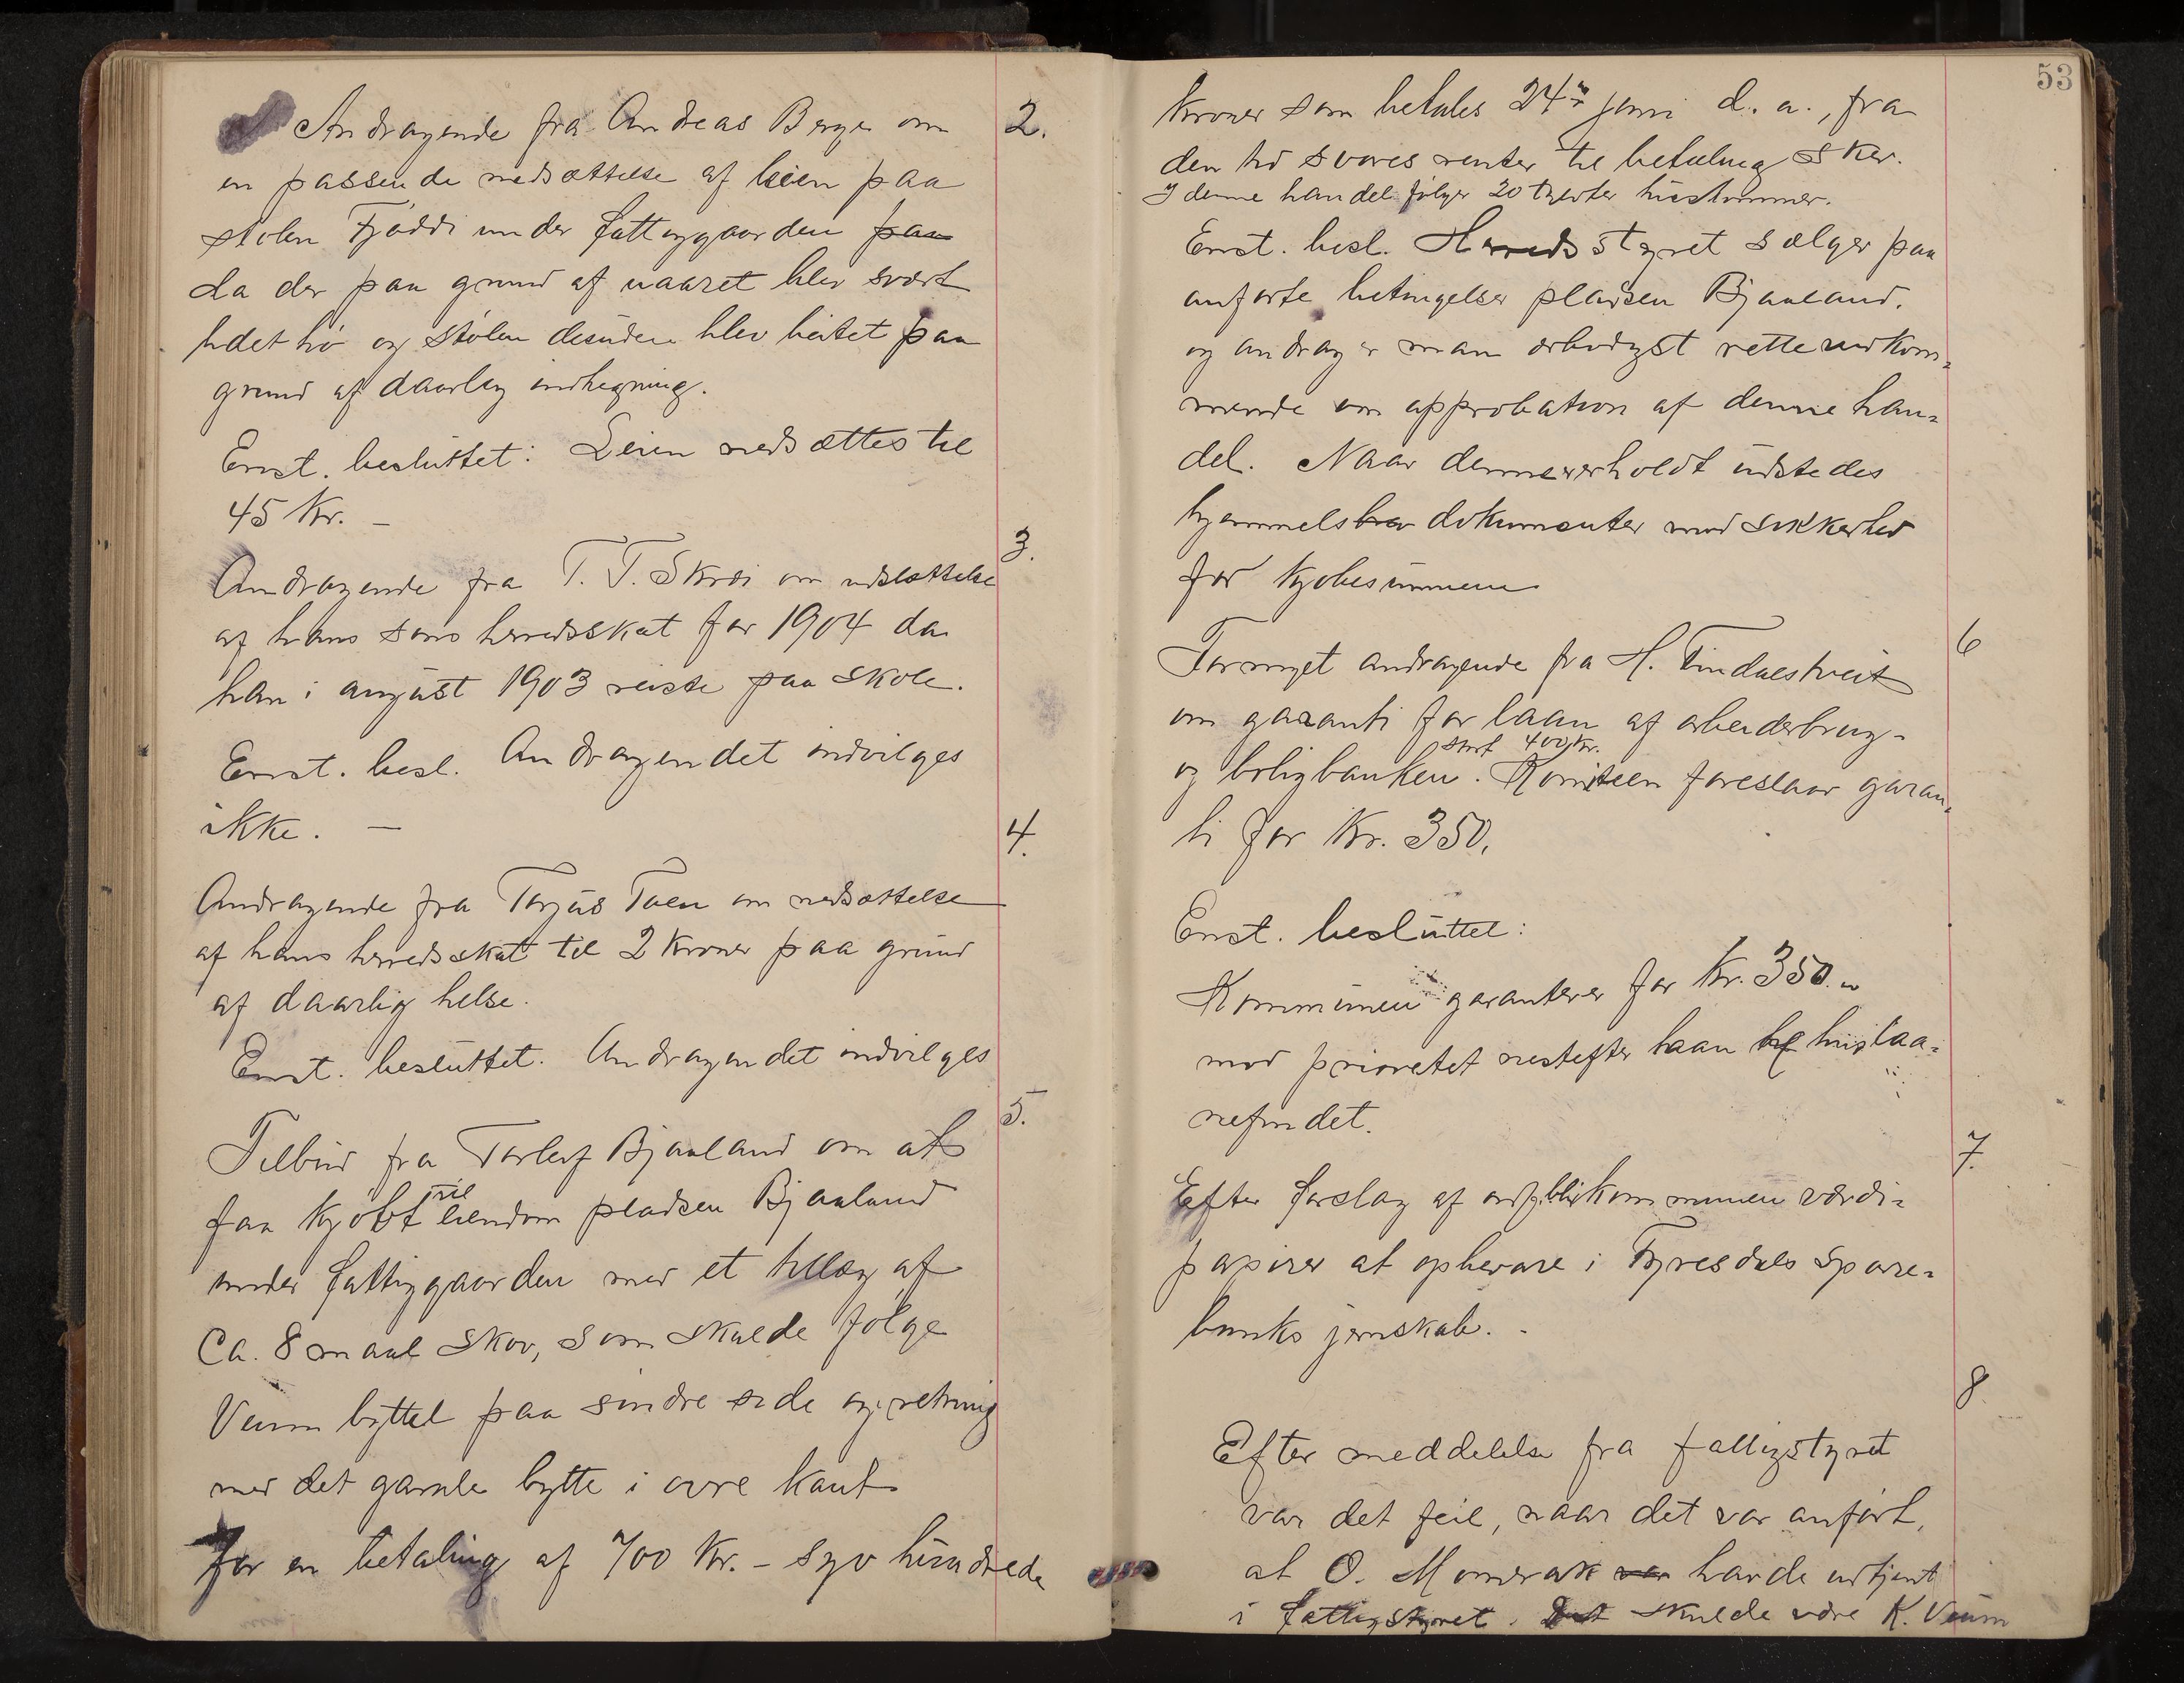 2.
Andragende fra Andreas Berge om
en passende nedsættelse af leien paa
stølen Fjøddi under fattiggaarden paa
da der paa grund af uaaret blev svært
lidet hø og stølen desuden blev beitet paa
grund af daarlig indhegning.
Enst. besluttet: Leien nedsættes til
45 Kr. –
3.
Andragende fra T. T. Skrei om udslættelse
af hans søns herredsskat for 1904 da
han i august 1903 reiste paa skole.
Enst. besl. Andragendet indvilges
ikke. –
4.
Andragende fra Torjus Toen om nedsættelse
af hans herredsskat til 2 kroner paa grund
af daarlig helse.
Enst. besluttet. Andragendet indvilges
5.
Tilbud fra Torleif Bjaaland om at
faa kjøbt til eiendom pladsen Bjaaland
under fattiggaarden med et tillæg af
Ca. 8 maal skov, som skulde følge
Veum byttet paa søndre side og retning
med det gamle bytte i øvre kant
for en betaling af 700 Kr. – syv hundrede
53
kroner som betales 24de juni d. a., fra
den tid svares renter til betaling sker.
I denne handel følger 20 tylvter hustømmer.
Enst. besl. Herredsstyret sælger paa
anførte betingelser pladsen Bjaaland.
og andrager man ærbødigst rette vedkom-
mende om approbation af denne han-
del. Naar denne erholdt udstedes
hjemmelsbrev dokumenter mod sikkerhed
for kjøbesummen
6
Fornyet andragende fra H. Tindlestveit
om garanti for laan af arbeiderbrug-
og boligbanken stort 400 Kr. Komiteen foreslaar garan-
ti for Kr. 350.
Enst. besluttet:
Kommunen garanterer for Kr. 350.
mod prioretet nestefter laan af huslaa-
nefondet.
7.
Efter forslag af ordf. blir kommunen værdi-
papirer at opbevare i Fyresdals Spare-
banks jernskab. -
8.
Efter meddelelse fra fattigstyret
var det feil, naar det var anført,
at O. Momrak var havde udtjent
i fattigstyret. Det skulde være K. Veum